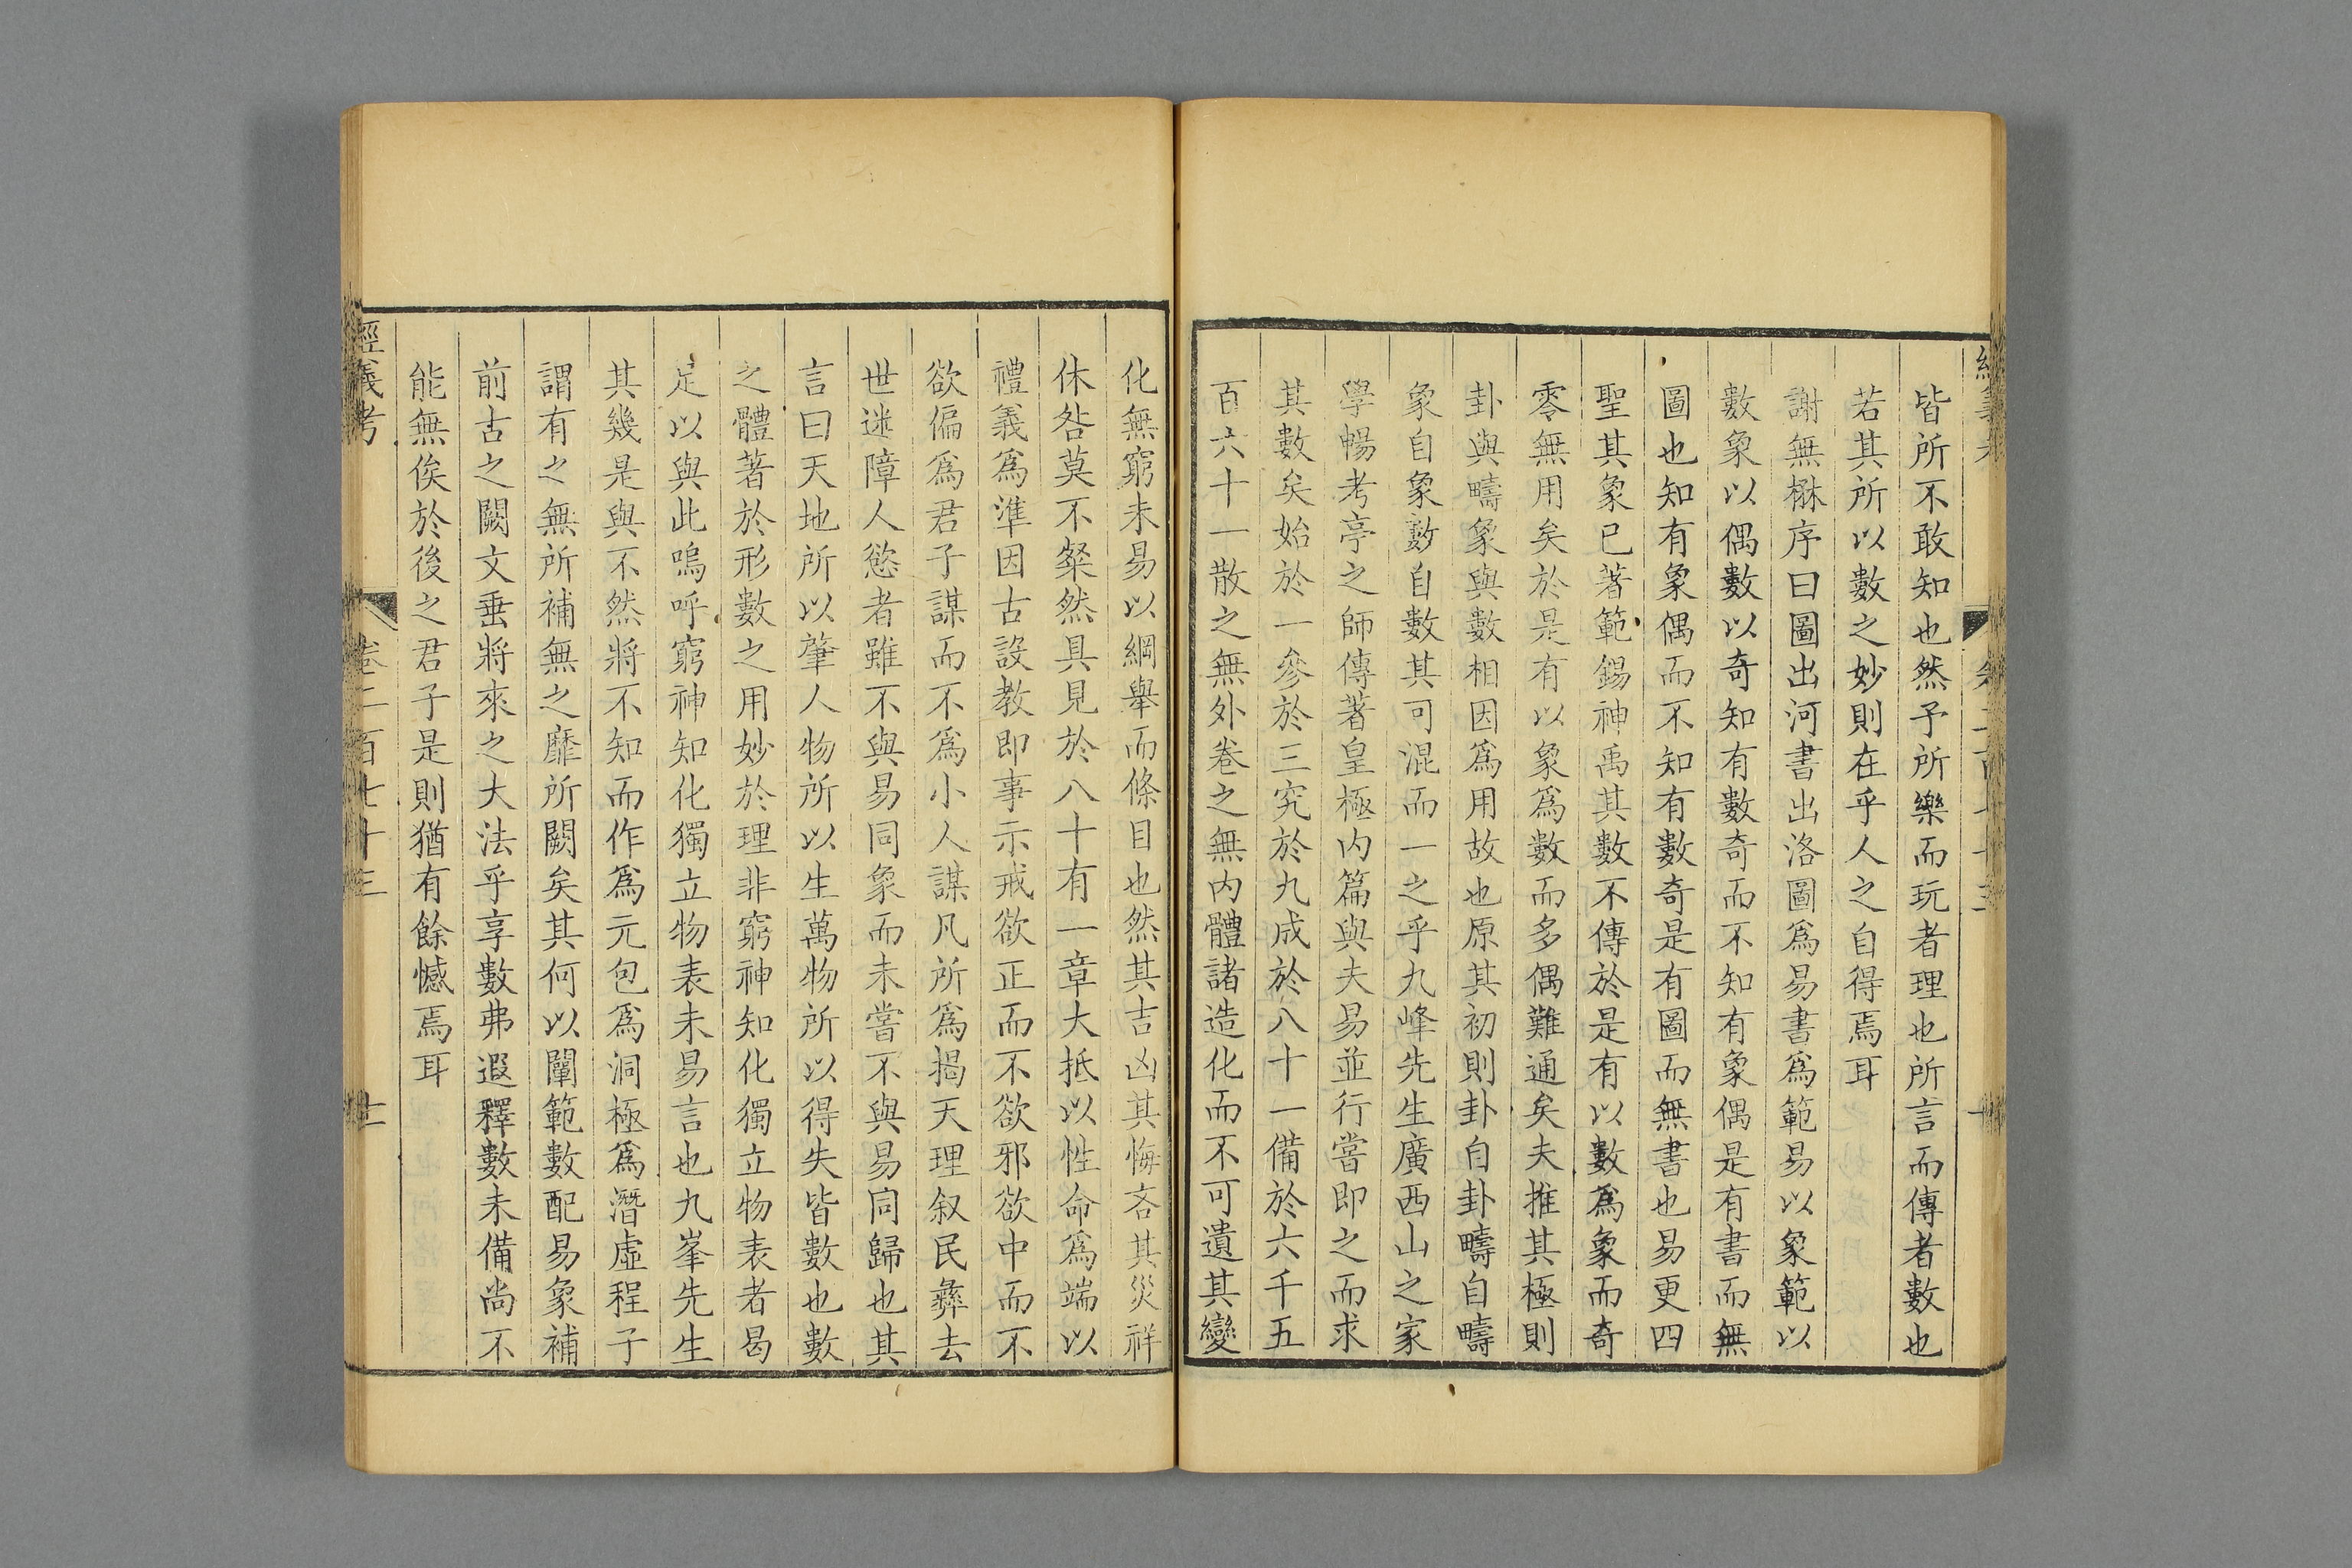 皆所不敢知也然予所樂而玩者理也所言而傳者數也
若其所以數之妙則在乎人之自得焉耳
謝無楙序曰圖出河書出洛圖爲易書爲範易以象範以
數象以偶數以奇知有數奇而不知有象偶是有書而無
圖也知有象偶而不知有數奇是有圖而無書也易更四
聖其象已著範錫神禹其數不傳於是有以數爲象而奇
零無用矣於是有以象爲數而多偶難通矣夫推其極則
卦與疇象與數相因爲用故也原其初則卦自卦疇自疇
象自象數自數其可混而一之乎九峰先生廣西山之家
學暢考亭之師傳著皇極内篇與夫易並行嘗即之而求
其數矣始於一參於三究於九成於八十一備於六千五
百六十一散之無外卷之無内體諸造化而不可遺其變
化無窮未易以綱舉而條目也然其吉凶其悔吝其災祥
休咎莫不粲然具見於八十有一章大抵以性命爲端以
禮義爲準因古設教即事示戒欲正而不欲邪欲中而不
欲偏爲君子謀而不爲小人謀凡所爲揭天理叙民彝去
世迷障人慾者雖不與易同象而未嘗不與易同歸也其
言曰天地所以肇人物所以生萬物所以得失皆數也數
之體著於形數之用妙於理非窮神知化獨立物表者曷
足以與此嗚呼窮神知化獨立物表未易言也九峯先生
其幾是與不然將不知而作爲元包爲洞極爲潛虛程子
謂有之無所補無之靡所闕矣其何以闡範數配易象補
前古之闕文垂將來之大法乎享數弗遐釋數未備尚不
能無俟於後之君子是則猶有餘憾焉耳
經義考
卷二百七十三
十一